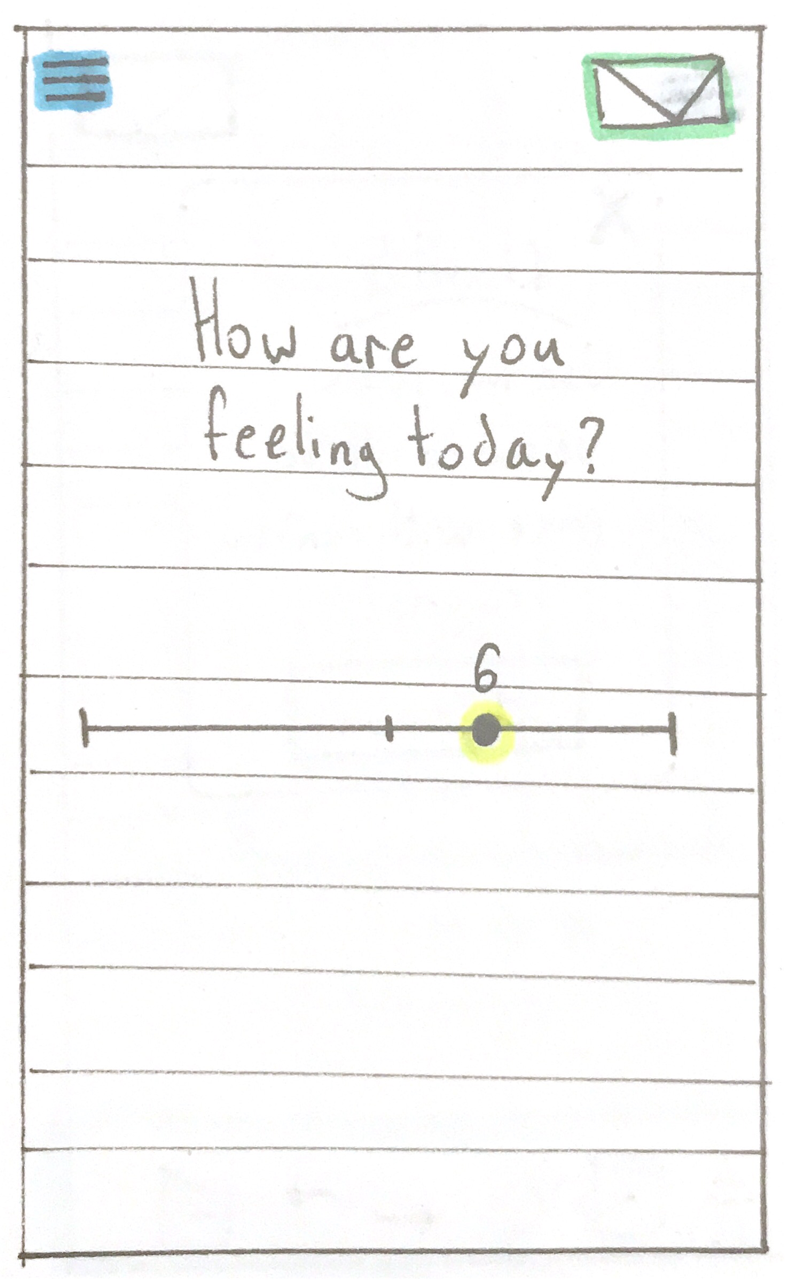 How are you
feeling today?
6